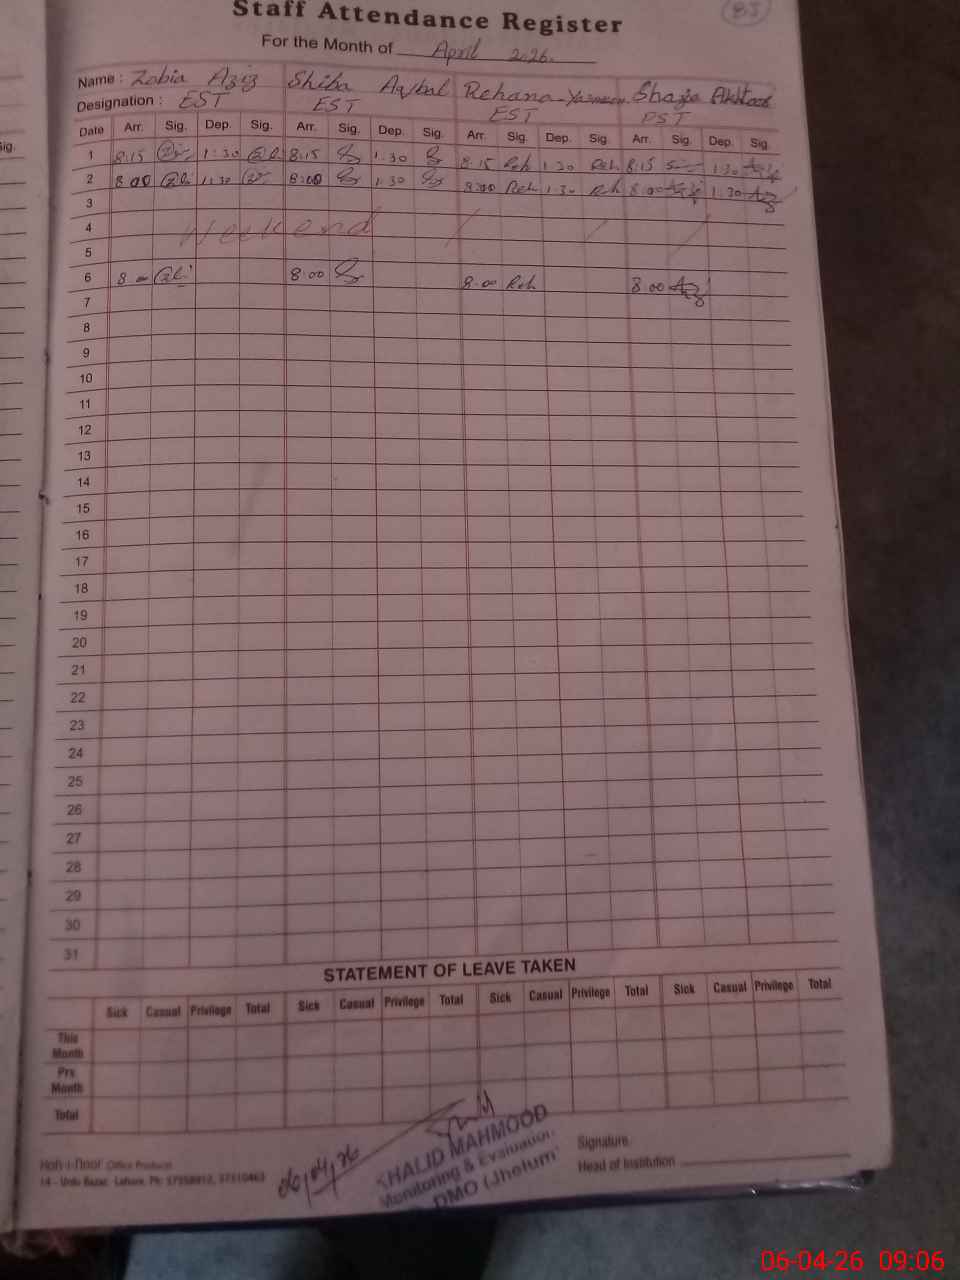 85
Staff Attendance Register
For the Month of April 2026.
Name : Zobia Aziz Shiba Rehana Yasmeen
Designation : EST EST EST PST
Date Arr. Sig. Dep. Sig. Arr. Sig. Dep. Sig. Arr. Sig. Dep. Sig. Arr. Sig. Dep. Sig.
ig.
1 8:15 1:30 8:15 1:30 8:15 Reh 1:30 Reh 8:15 1:30
2 8:00 1:30 8:00 1:30 8:00 Reh 1:30 Rh 8:00 1:30
3
4 Weekend
5
6 8:00 8:00 Reh 8:00
7
8
9
10
11
12
13
14
15
16
17
18
19
20
21
22
23
24
25
26
27
28
29
30
31
STATEMENT OF LEAVE TAKEN
Sick Casual Privilege Total Sick Casual Privilege Total Sick Casual Privilege Total Sick Casual Privilege Total
This Month
Prv. Month
Total
06/04/26
KHALID MAHMOOD
Monitoring & Evaluation
DMO (Jhelum)
Signature
Head of Institution
Koh-i-Noor Office Products
14 - Urdu Bazar, Lahore. Ph:
06-04-26 09:06